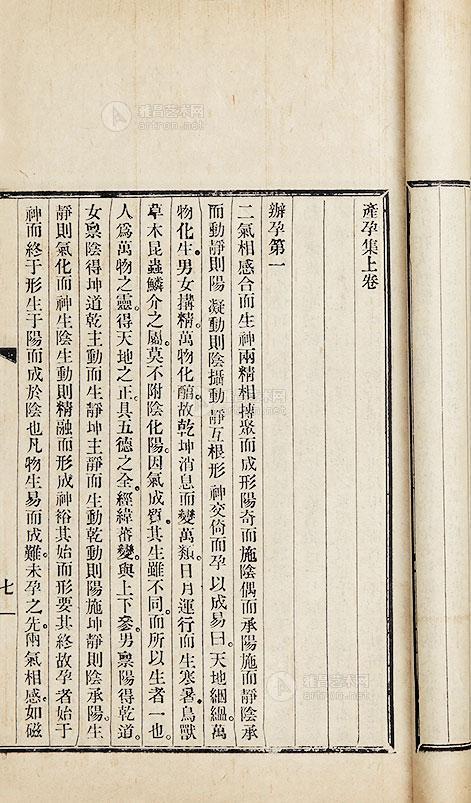 產孕集上卷
辦孕第一
二氣相感合而生神兩精相摶聚而成形陽奇而施陰偶而承陽施而靜陰承
而動靜則陽凝動則陰攝動靜互根形神交倚而孕以成易曰天地絪縕萬
物化生男女搆精萬物化醕故乾坤消息而變萬類日月運行而生寒暑鳥獸
草木昆蟲鱗介之屬莫不附陰化陽因氣成質其生雖不同而所以生者一也
人爲萬物之靈得天地之正具五德之全經緯蕃變與上下參男禀陽得乾道
女禀陰得坤道乾主動而生靜坤主靜而生動乾動則陽施坤靜則陰承陽生
靜則氣化而神生陰生動則精融而形成神裕其始而形要其終故孕者始于
神而終于形生于陽而成於陰也凡物生易而成難未孕之先兩氣相感如磁
七
雅昌艺术网
artron.net
雅昌艺术网
artron.net
雅昌艺术网
artron.net